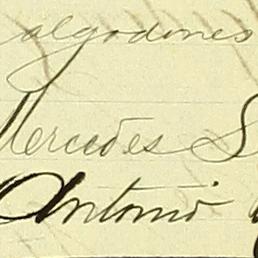 algodones
Mercedes S
Antonio